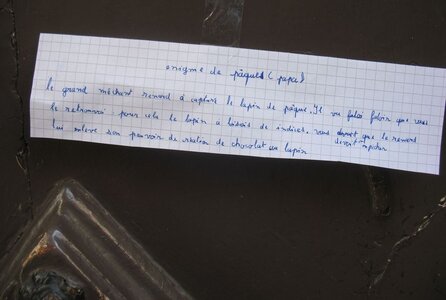 enigme de pâques (papa)
le grand méchant renard à capturé le lapin de pâque. Il va falloir que vous
le retrouvai pour cela le lapin a laissé de indices. vous devet que le renard
lui enleve son pouvoir de création de chocolat en lapin